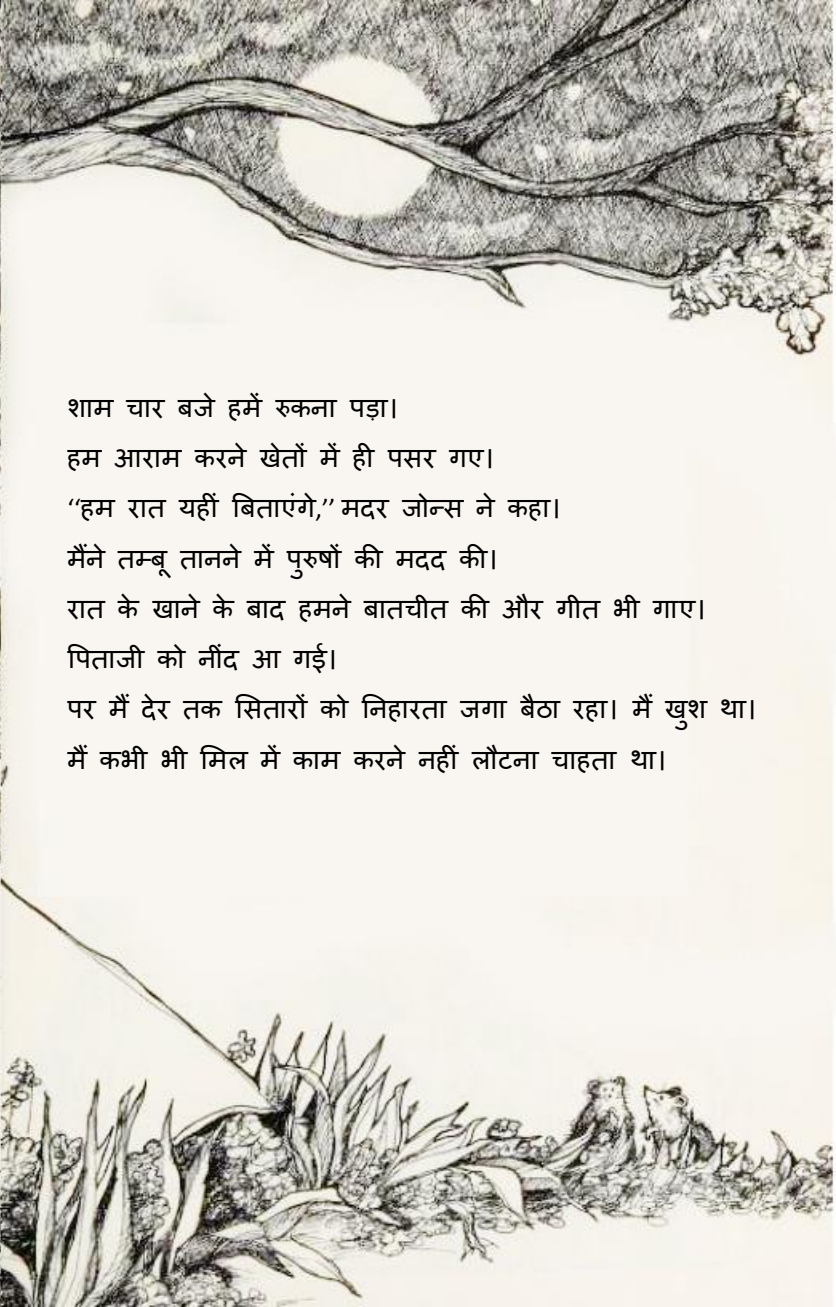 शाम चार बजे हमें रुकना पड़ा।
हम आराम करने खेतों में ही पसर गए।
‘‘हम रात यहीं बिताएंगे,’’ मदर जोन्स ने कहा।
मैंने तम्बू तानने में पुरुषों की मदद की।
रात के खाने के बाद हमने बातचीत की और गीत भी गाए।
पिताजी को नींद आ गई।
पर मैं देर तक सितारों को निहारता जगा बैठा रहा। मैं खुश था।
मैं कभी भी मिल में काम करने नहीं लौटना चाहता था।